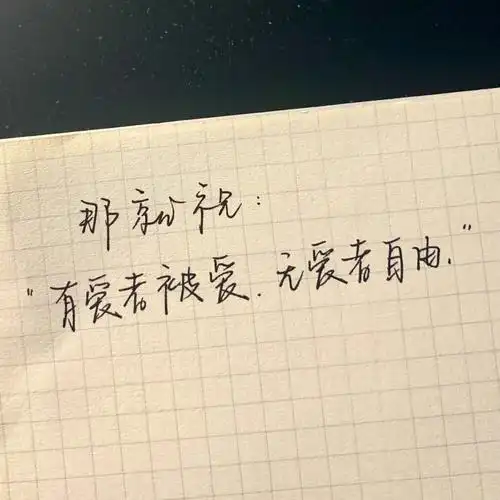 那就祝：
“有爱者被爱.无爱者自由.”